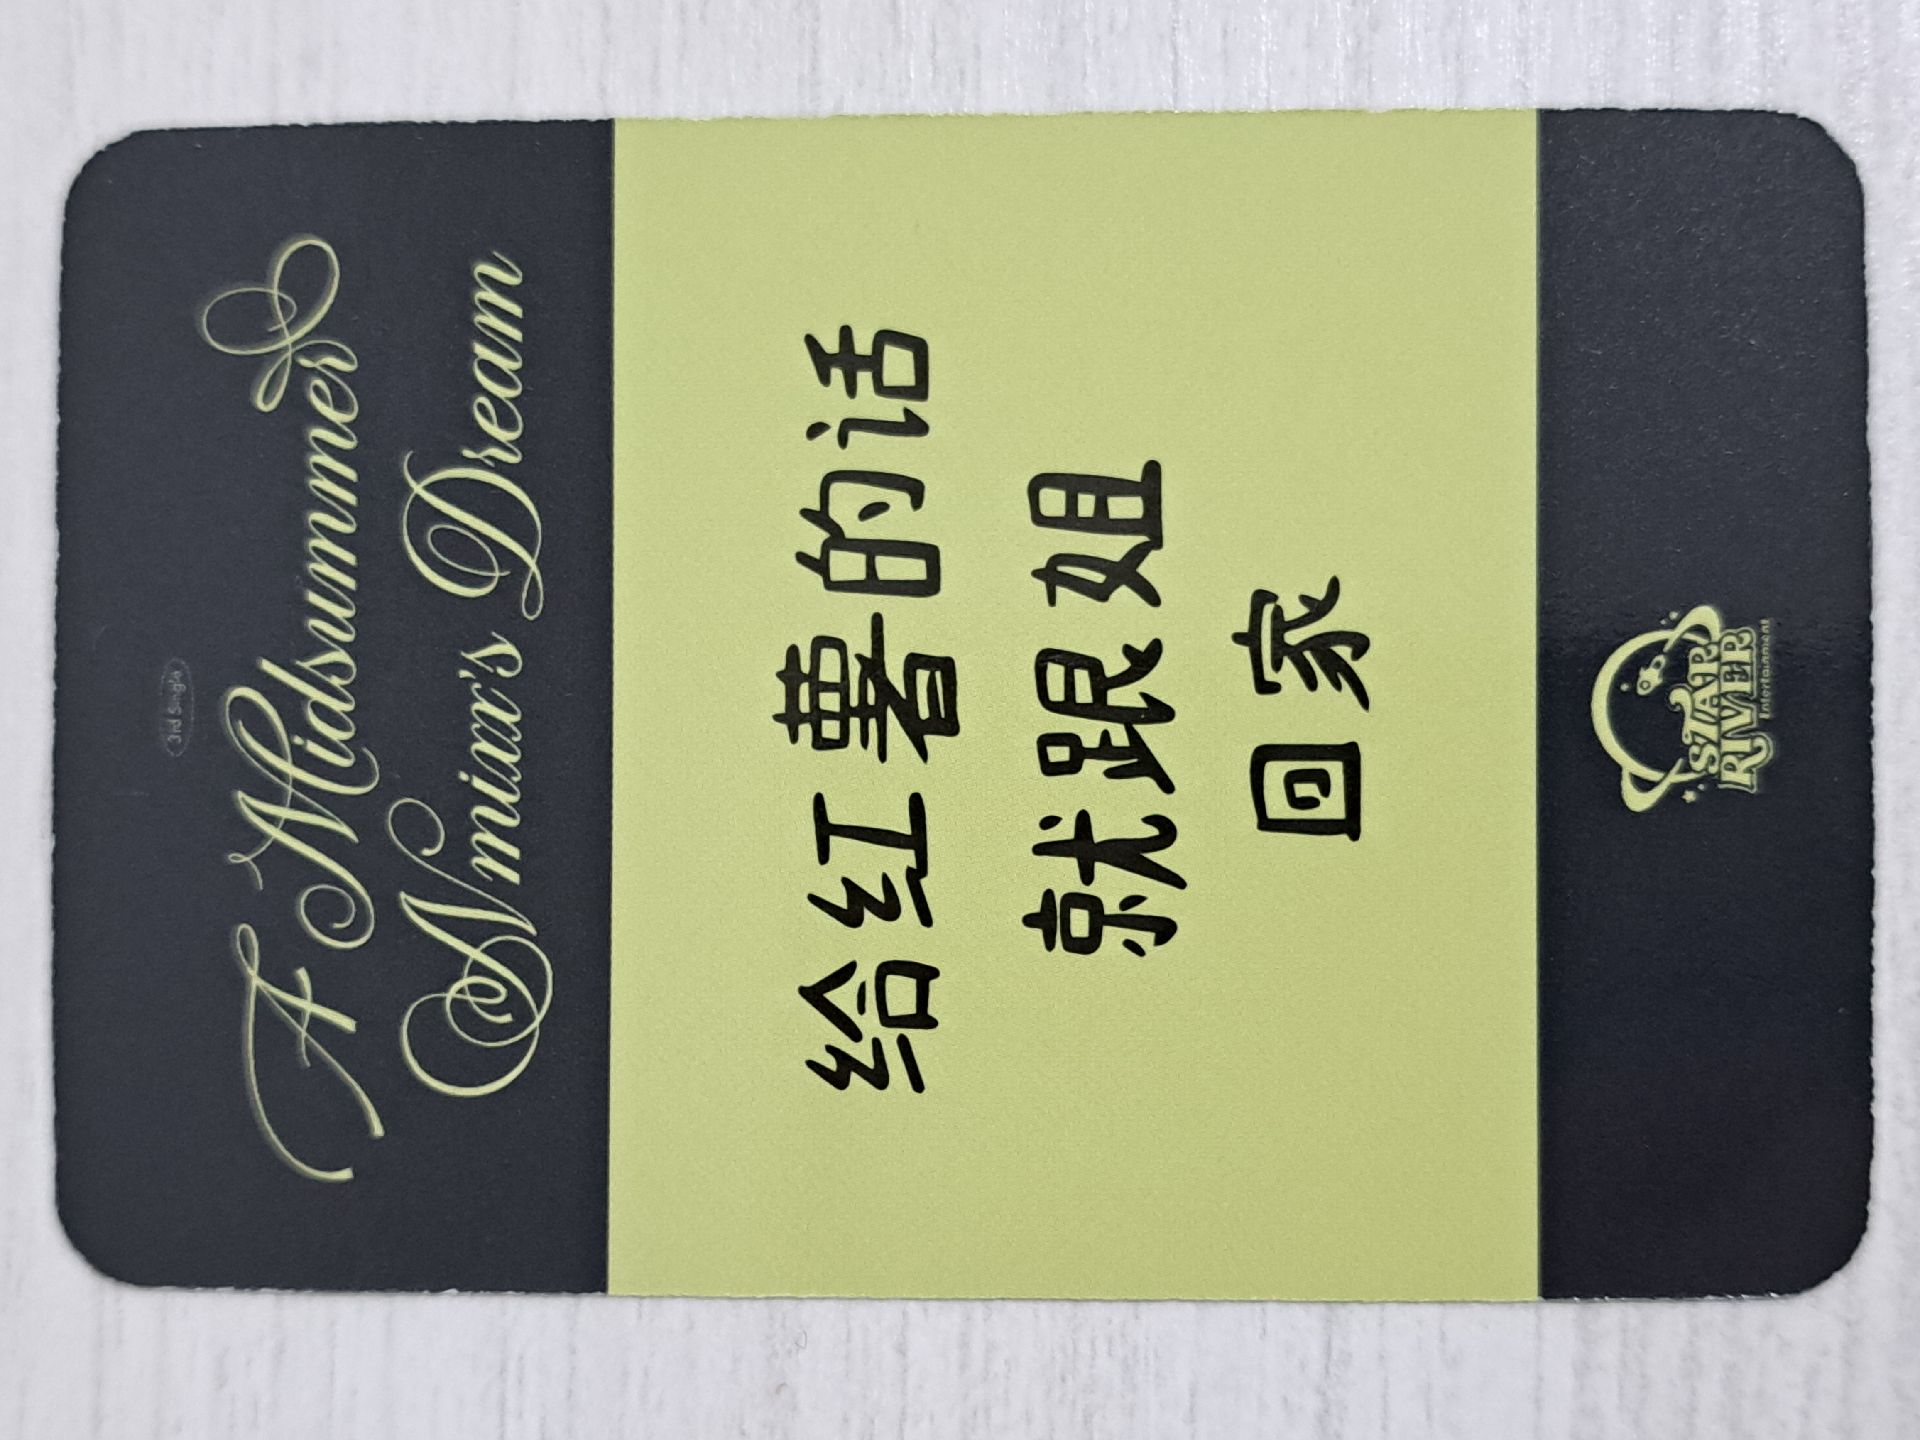 3rd Single
A Midsummer
Nmixx's Dream
给红薯的话
就跟姐
回家
STAR
RIVER
Entertainment